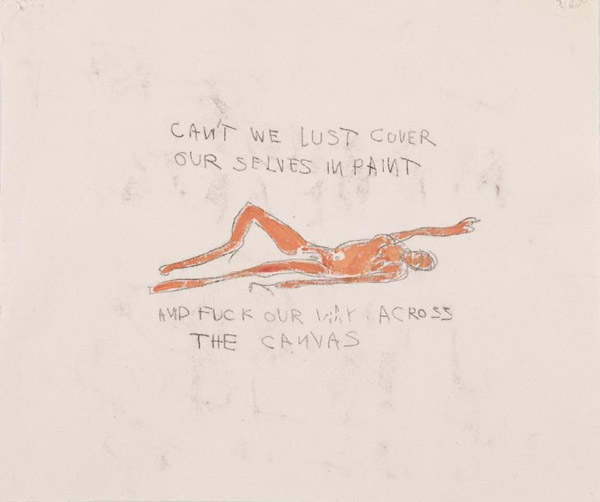 CAN'T WE LUST COVER
OUR SELVES IN PAINT
AND FUCK OUR WAY ACROSS
THE CANVAS